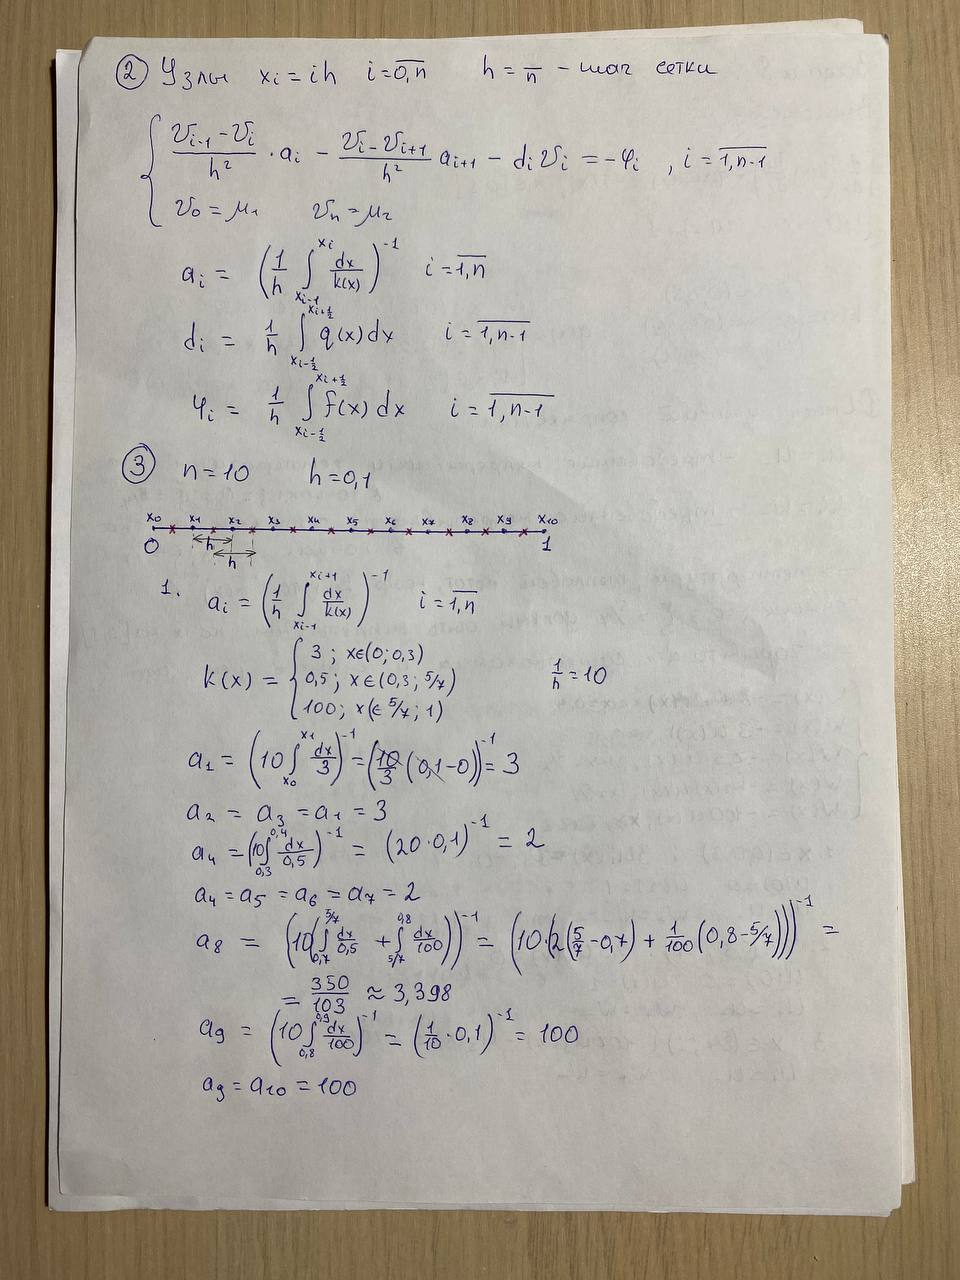 ② Узлы xᵢ = ih i = 0,n h = 1/n - шаг сетки
{ (vᵢ₋₁ - vᵢ)/h² · aᵢ - (vᵢ - vᵢ₊₁)/h² aᵢ₊₁ - dᵢvᵢ = -φᵢ , i = 1,n-1
v₀ = μ₁ vₙ = μ₂
aᵢ = (1/h ∫_{xᵢ₋₁}^{xᵢ} dx/k(x))⁻¹ i = 1,n
dᵢ = 1/h ∫_{xᵢ₋½}^{xᵢ₊½} q(x)dx i = 1,n-1
φᵢ = 1/h ∫_{xᵢ₋½}^{xᵢ₊½} f(x)dx i = 1,n-1
③ n = 10 h = 0,1
x₀ x₁ x₂ x₃ x₄ x₅ x₆ x₇ x₈ x₉ x₁₀
0 h h 1
1. aᵢ = (1/h ∫_{xᵢ₋₁}^{xᵢ₊₁} dx/k(x))⁻¹ i = 1,n
k(x) = { 3 ; x∈(0; 0,3)
0,5 ; x∈(0,3; 5/7) 1/h = 10
100; x(∈ 5/7; 1)
a₁ = (10 ∫_{x₀}^{x₁} dx/3)⁻¹ = (10/3 (0,1-0))⁻¹ = 3
a₂ = a₃ = a₁ = 3
a₄ = (10 ∫_{0,3}^{0,4} dx/0,5)⁻¹ = (20·0,1)⁻¹ = 2
a₄ = a₅ = a₆ = a₇ = 2
a₈ = (10(∫_{0,7}^{5/7} dx/0,5 + ∫_{5/7}^{0,8} dx/100))⁻¹ = (10·(2(5/7 - 0,7) + 1/100 (0,8 - 5/7)))⁻¹ =
= 350/103 ≈ 3,398
a₉ = (10 ∫_{0,8}^{0,9} dx/100)⁻¹ = (1/10 · 0,1)⁻¹ = 100
a₉ = a₁₀ = 100